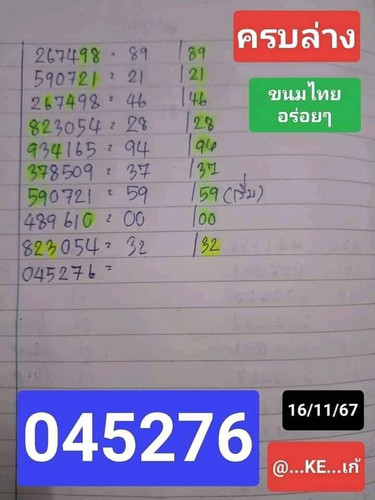 ครบล่าง
267498 = 89 | 89
590721 = 21 | 21
267498 = 46 | 46
823054 = 28 | 28
934165 = 94 | 94
378509 = 37 | 37
590721 = 59 | 59 (เริ่ม)
489610 = 00 | 00
823054 = 32 | 32
045276 =
ขนมไทย
อร่อยๆ
045276
16/11/67
@...KE...เก้